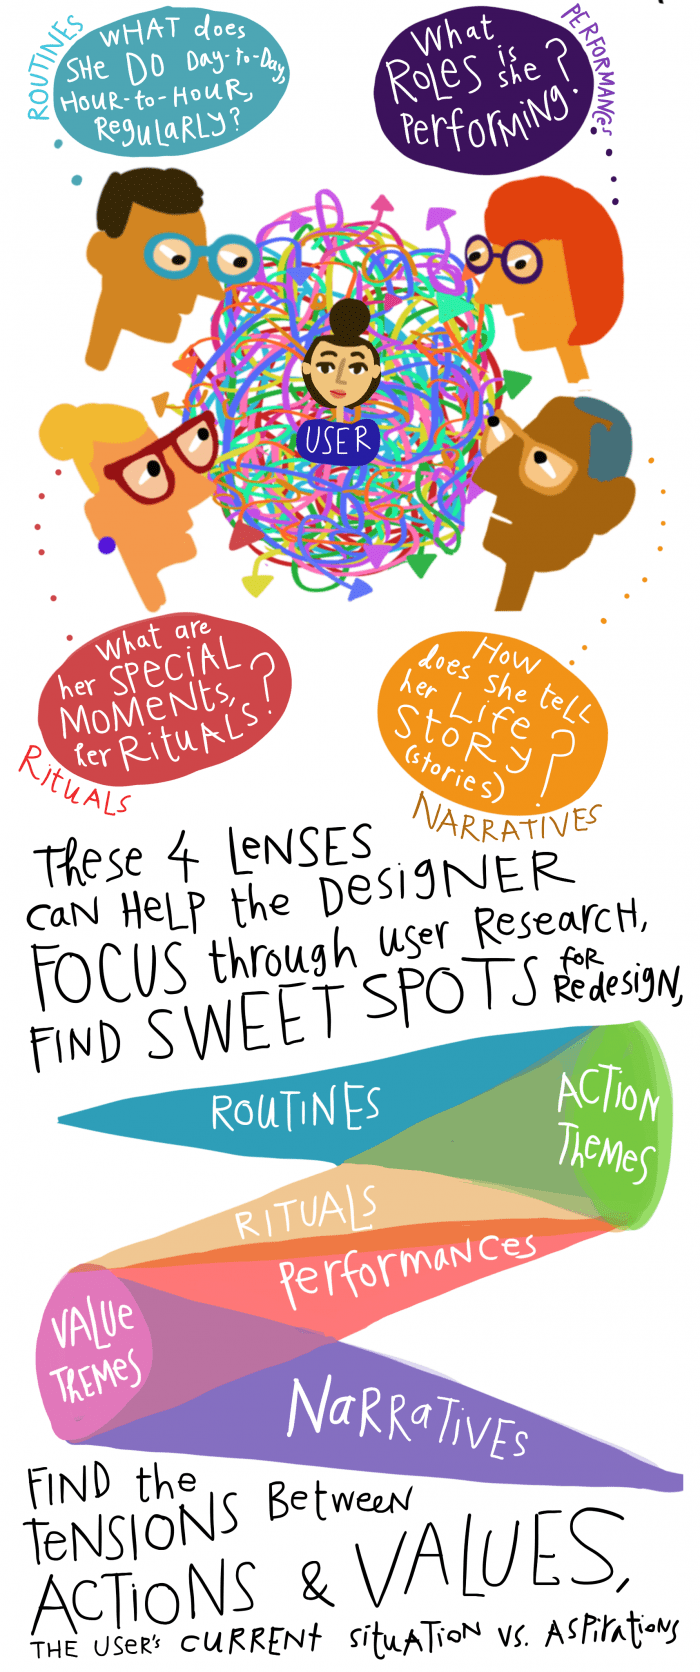 ROUTINES
WHAT does
SHE DO DAY-to-DAY,
HOUR-to-HOUR,
RegULARLY?
PERFORMANCES
What
ROLES is
she
PerfoRMING?
USER
What are
her SPECIAL
MOMeNts,
her RITUALS?
RITUALS
HOW
does She teLL
her LIFe
SToRy
(stories)?
NARRATIVES
These 4 LeNSES
CAN HeLP the DesigNER
FOCUS through user Research,
FIND SWEET SPOTS foR Redesign,
ROUTINES
ACTION
TheMes
RITUALS
PerformaNces
VALUe
THEMes
NaRRaTIVES
FIND the
TeNSIONS BetweeN
ACTIONS & VALUES,
THE USeR's CURRENt SituATioN VS. ASPIRAtioNS